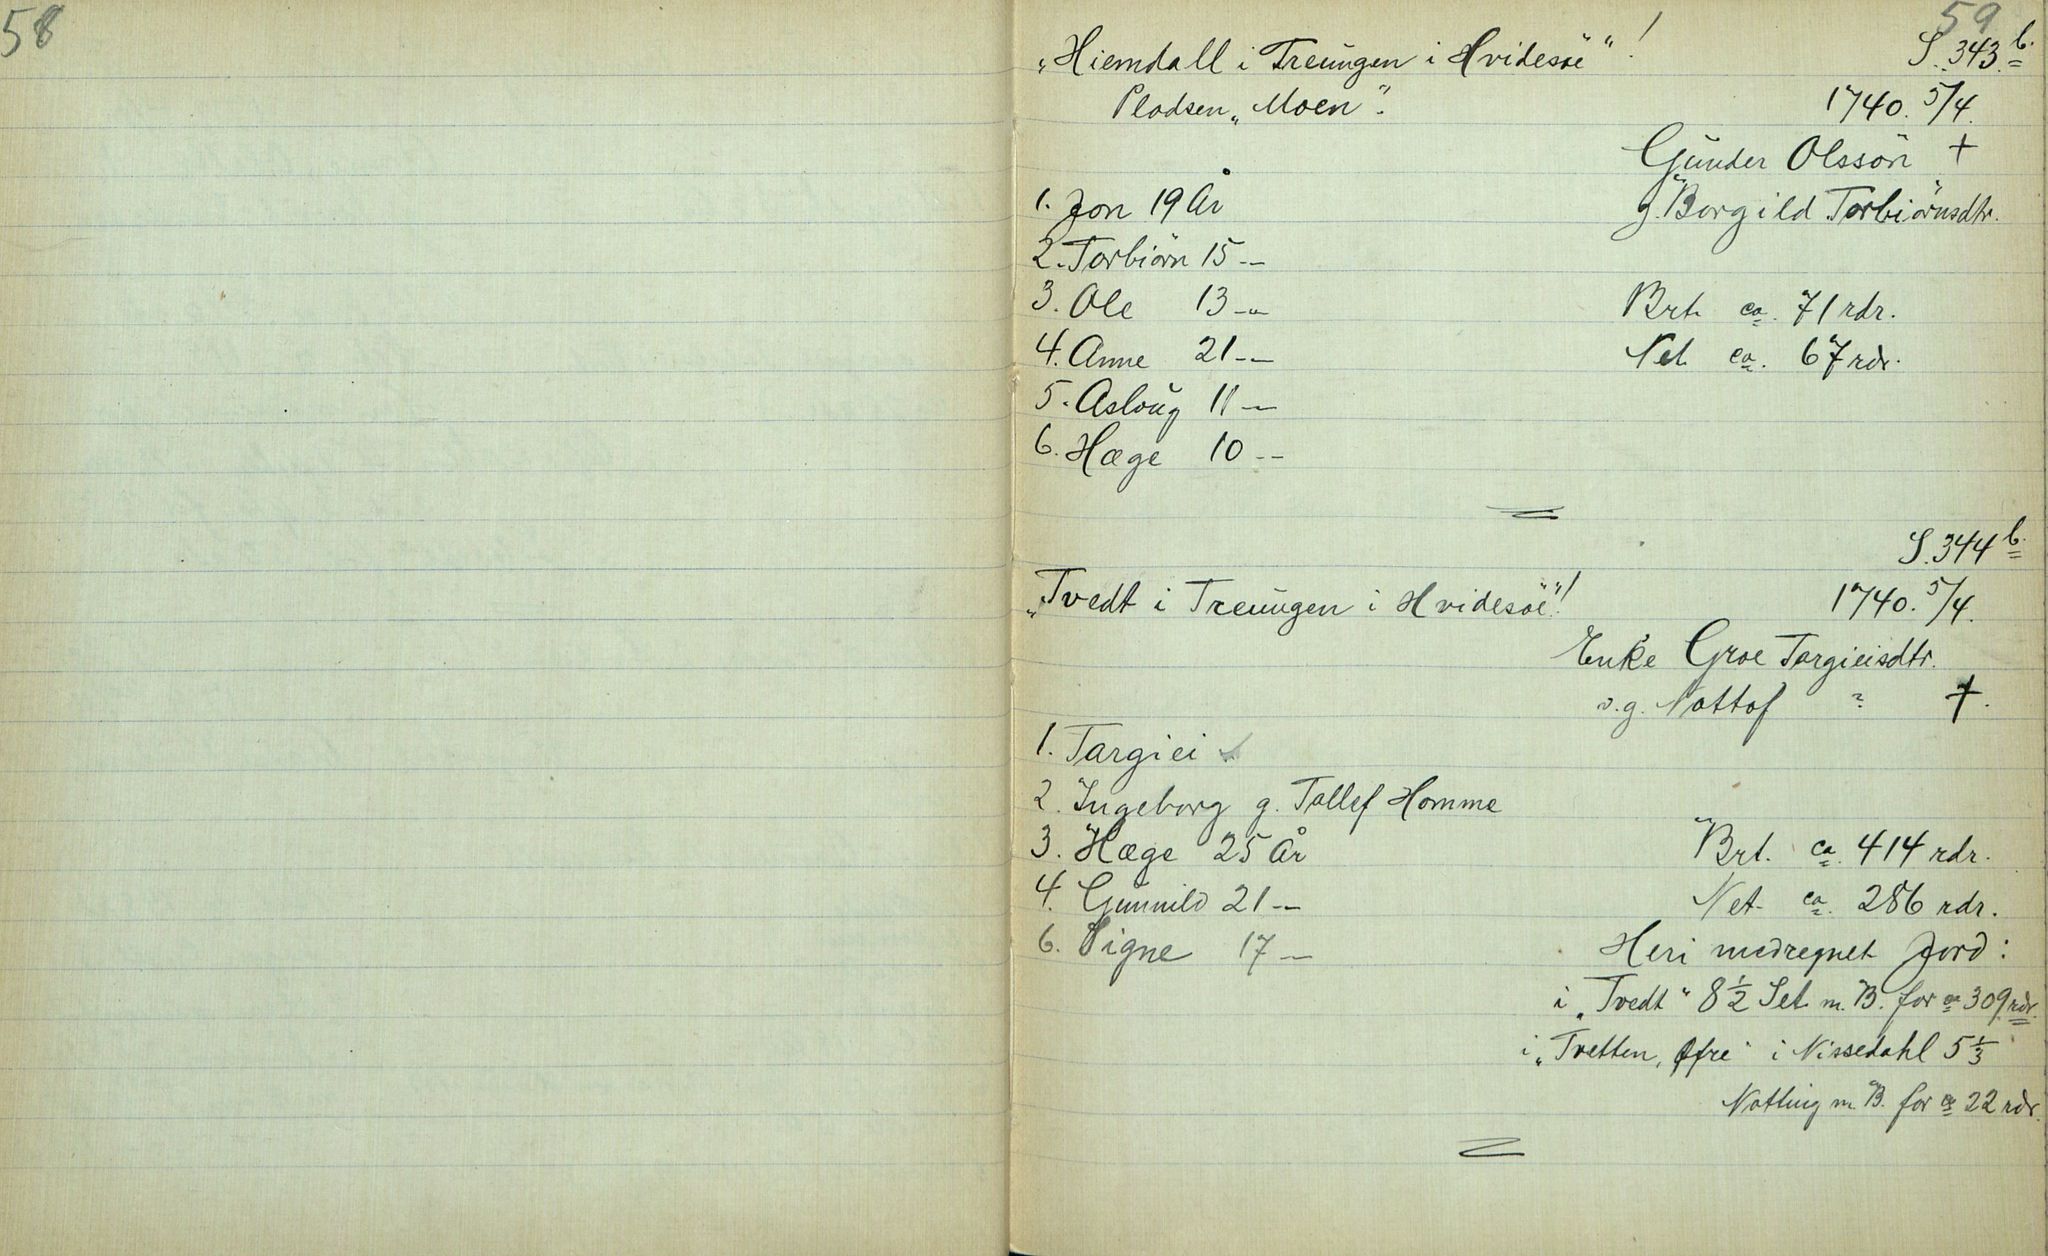 58
59
„Hiemdall i Treungen i Hvidesøe“! S. 343 b.
Pladsen „Moen“. 1740. 5/4.
Gunder Olssøn †
1. Jon 19 År g. Borgild Torbiørnsdtr.
2. Torbiørn 15 —
3. Ole 13 — Brt. ca. 71 rdr.
4. Anne 21 — Net. ca. 67 rdr.
5. Asloug 11 —
6. Hæge 10 —
S. 344 b.
„Tvedt i Treungen i Hvidesøe“! 1740. 5/4.
Enke Groe Targieisdtr.
v. g. Nottof ? †.
1. Targiei
2. Ingeborg g. Tallef Homme
3. Hæge 25 År Brt. ca. 414 rdr.
4. Gunnild 21 — Net. ca. 286 rdr.
6. Signe 17 — Heri medregnet Jord:
i „Tvedt“ 8 1/2 Set. m. B. for ca 309 rdr.
i „Tvetten, Øfre“ i Nissedahl 5 1/3
Notting m. B. for ca 22 rdr.